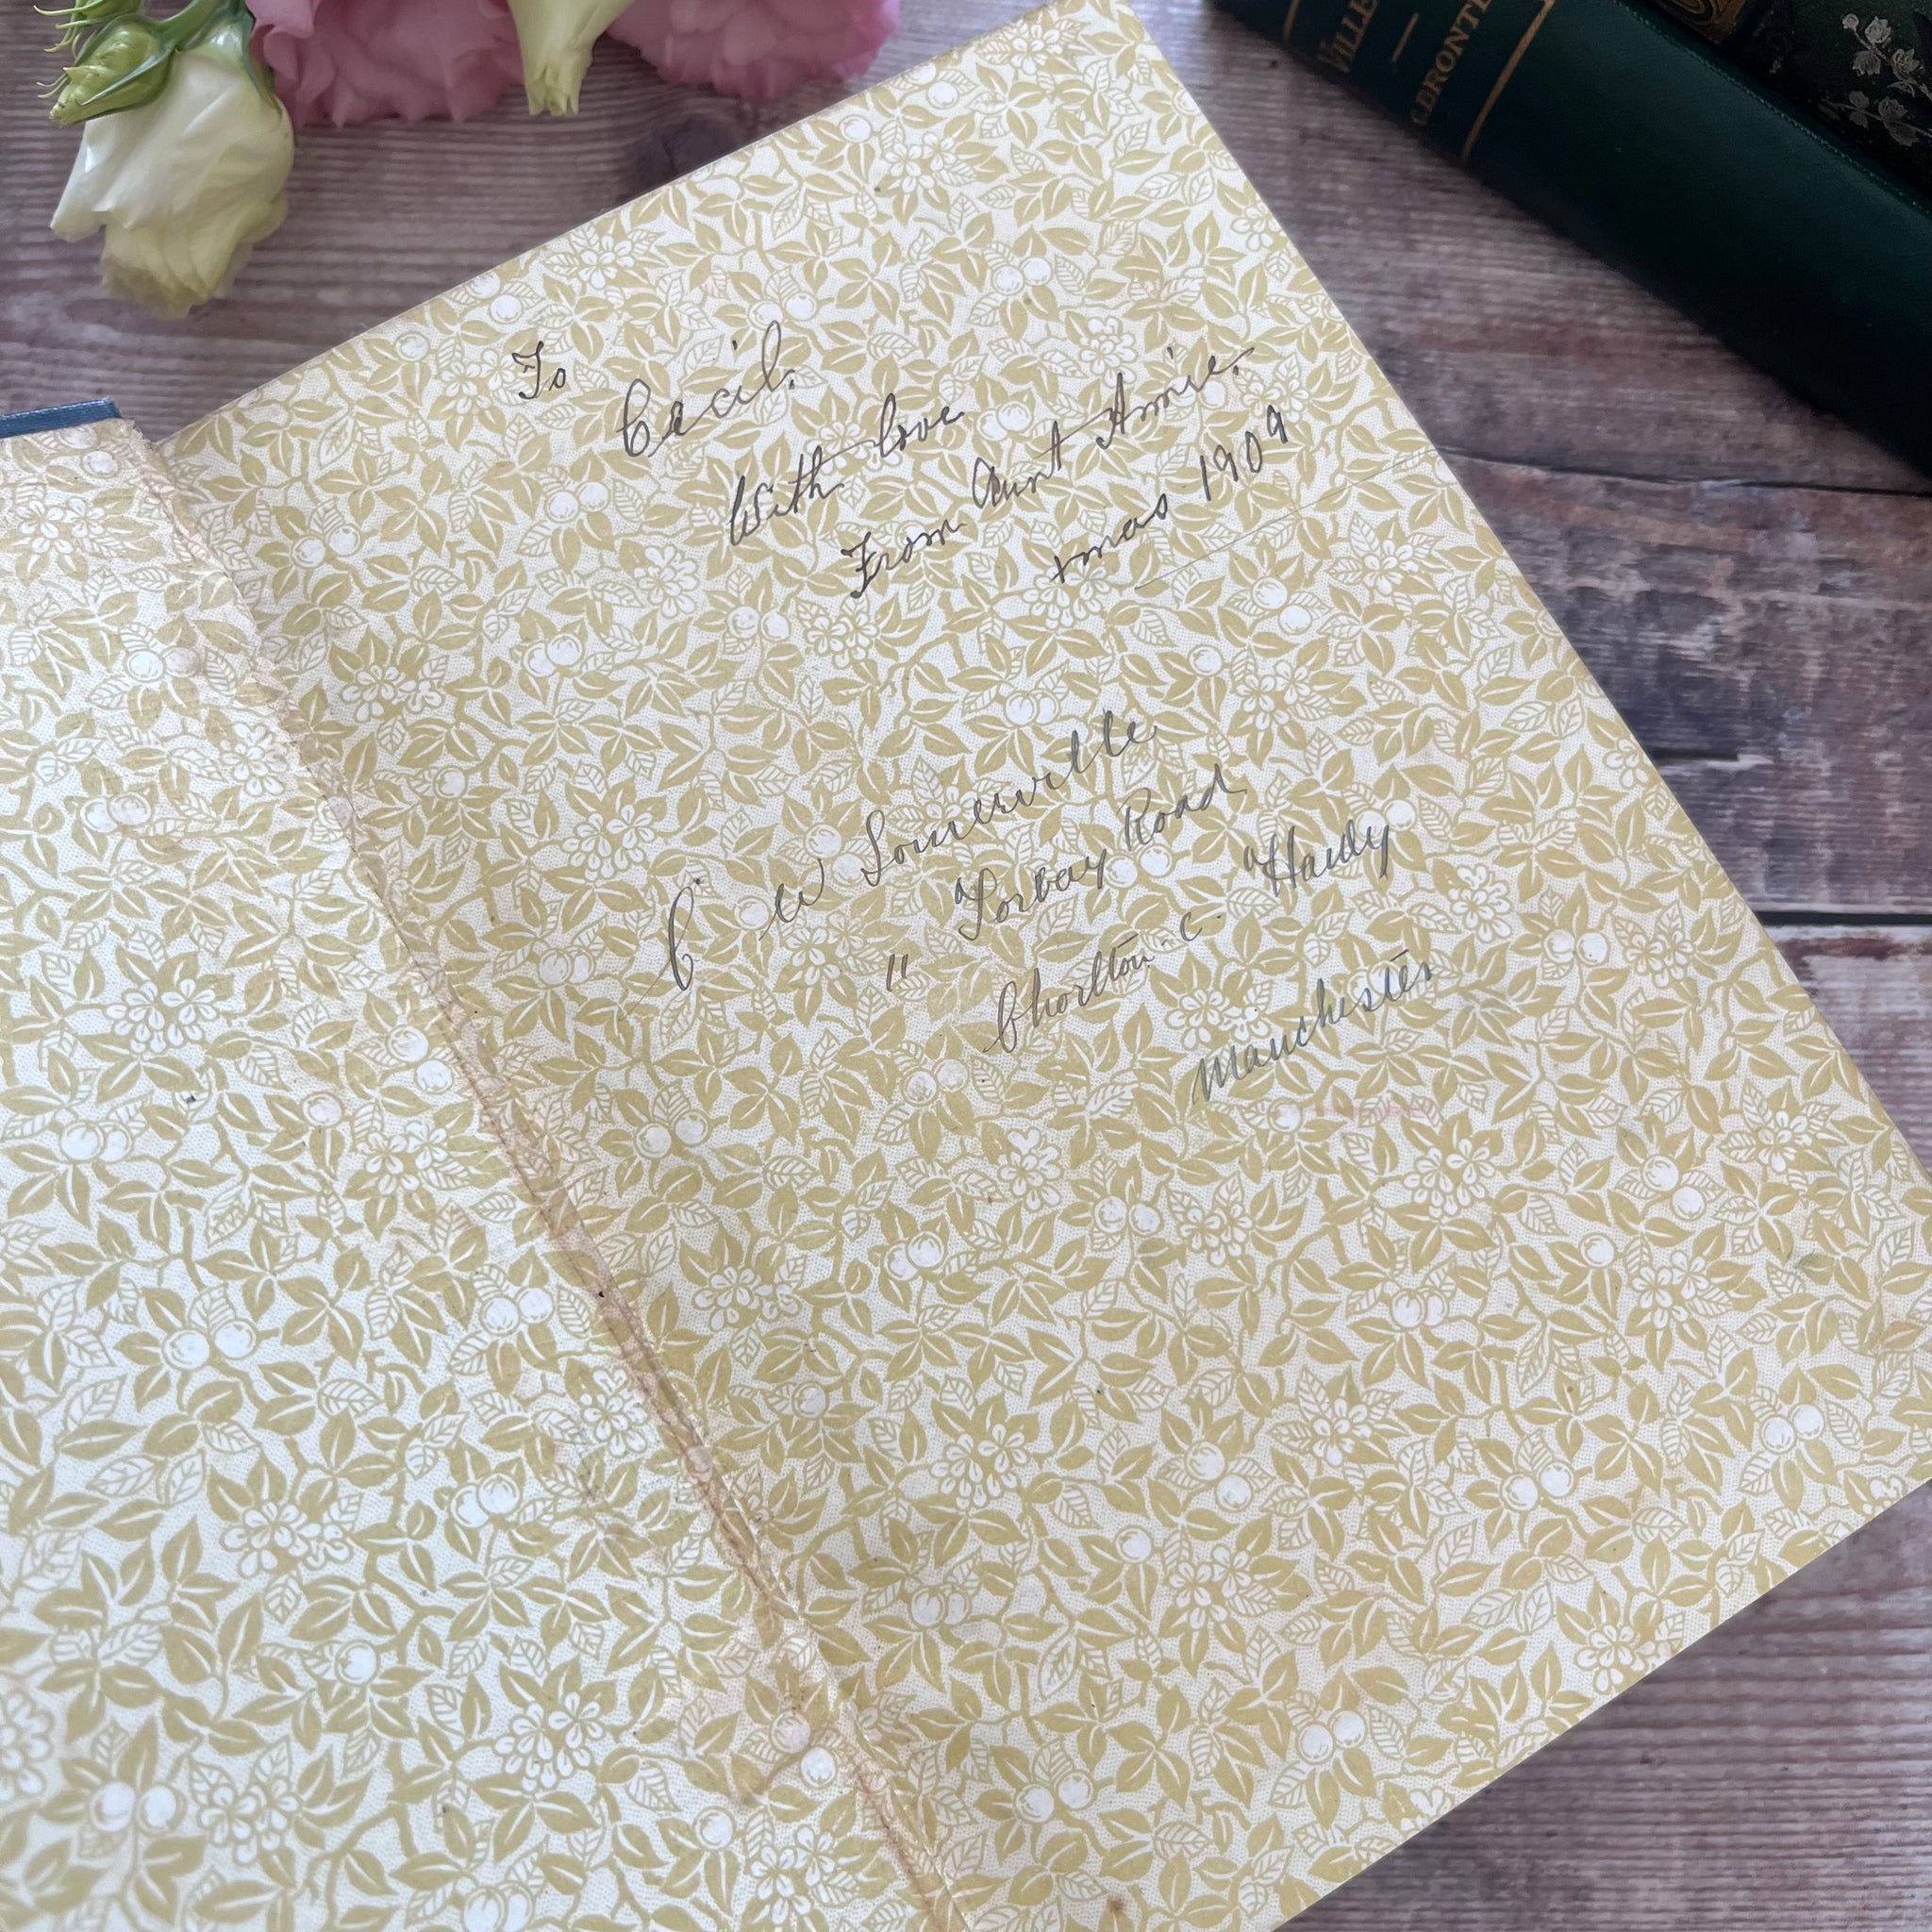 To
Cecil.
With love
From Aunt Annie.
xmas 1909
C W Somerville
11 Torbay Road
Chorlton. C. Hardy
Manchester
VILLE
C. BRONTE